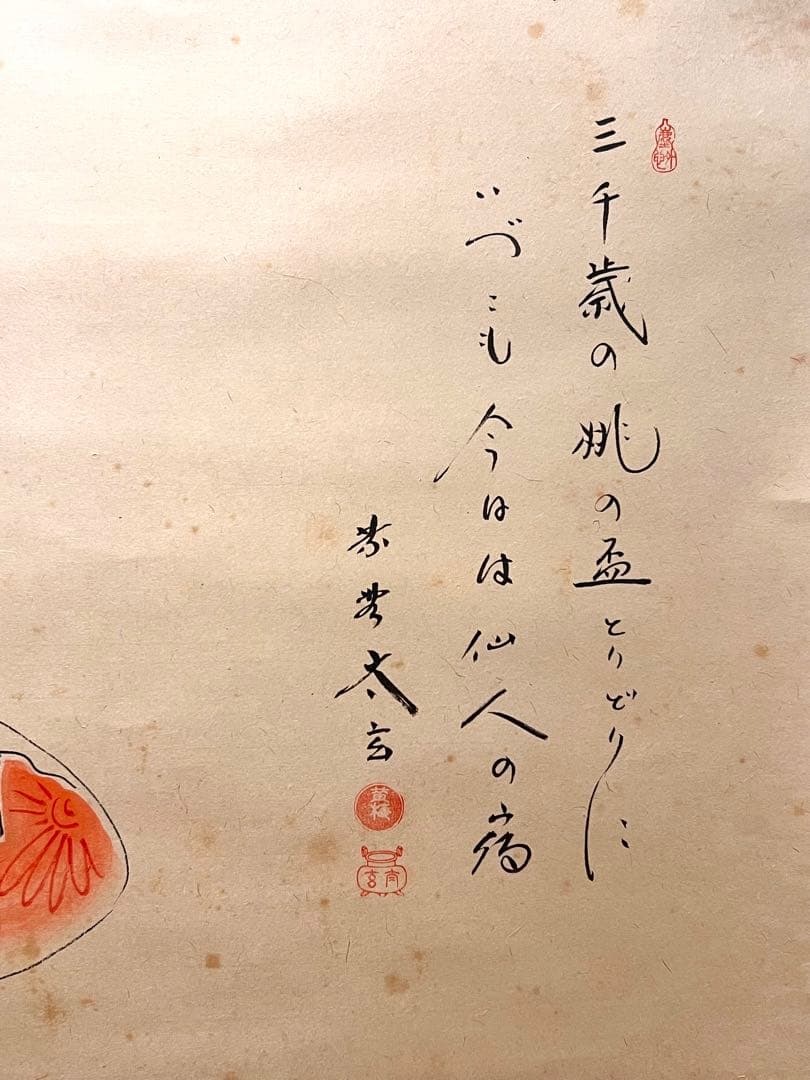 三千歳の桃の盃とりどりに
いづこも今日は仙人の宿
太玄
黄梅